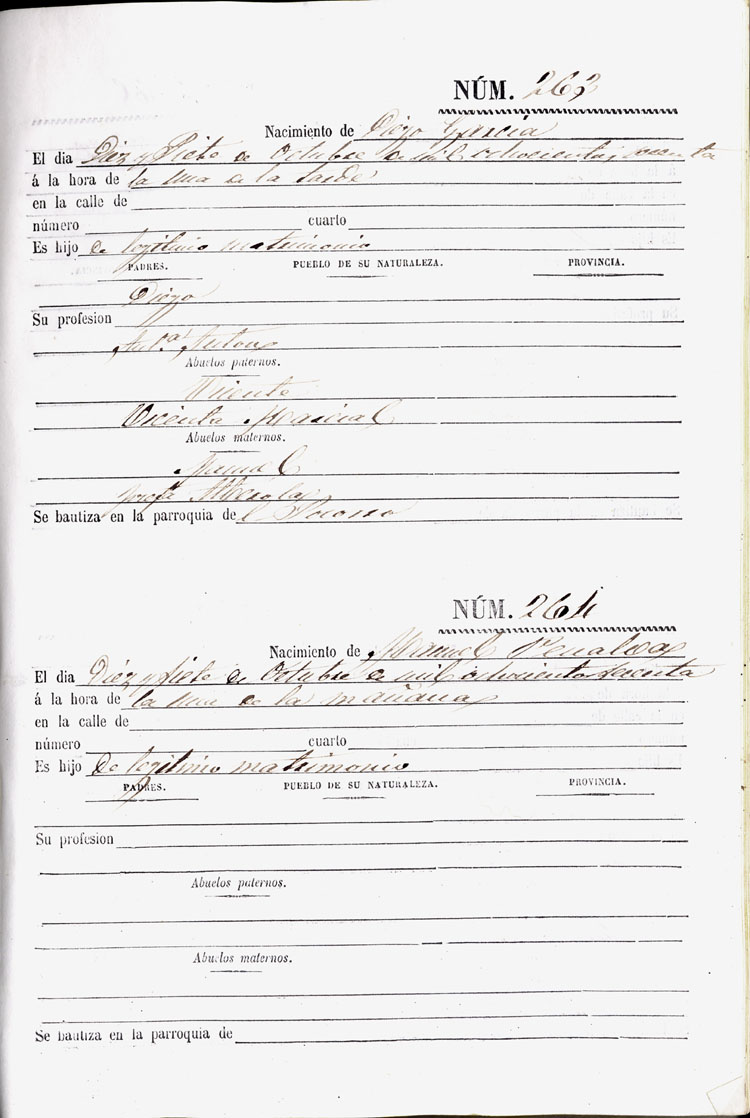 NÚM. 263
Nacimiento de Diego Garcia
El dia Diez y Siete de Octubre de mil ochocientos sesenta
á la hora de la una de la tarde
en la calle de
número cuarto
Es hijo de legitimo matrimonio
PADRES. PUEBLO DE SU NATURALEZA. PROVINCIA.
Diego
Su profesion
Ant.a Anton
Abuelos paternos.
Vicente
Vicenta Marcial
Abuelos maternos.
Manuel
Josefa Alberola
Se bautiza en la parroquia del Socorro
NÚM. 264
Nacimiento de Manuel Penalva
El dia Diez y Siete de Octubre de mil ochocientos sesenta
á la hora de la una de la mañana
en la calle de
número cuarto
Es hijo De legitimo matrimonio
PADRES. PUEBLO DE SU NATURALEZA. PROVINCIA.
Su profesion
Abuelos paternos.
Abuelos maternos.
Se bautiza en la parroquia de